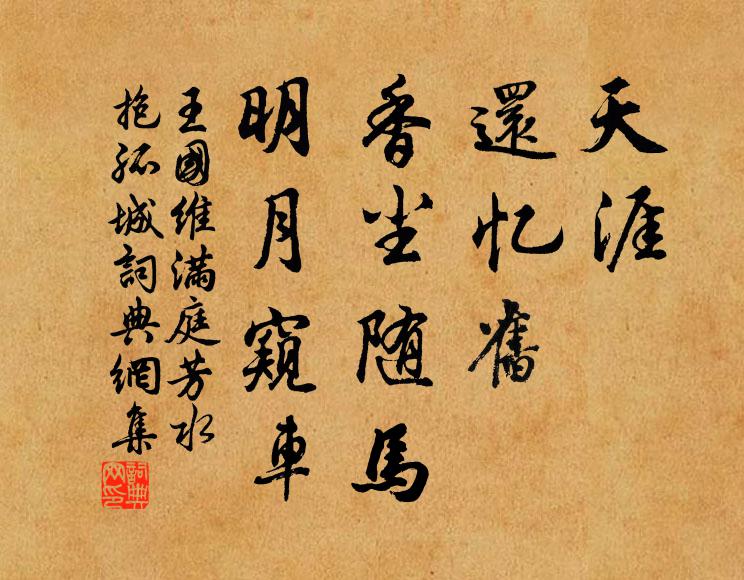 天涯
還忆舊
香尘随馬
明月窺車
王國维滿庭芳水
抱孤城詞典網集
詞典
网印